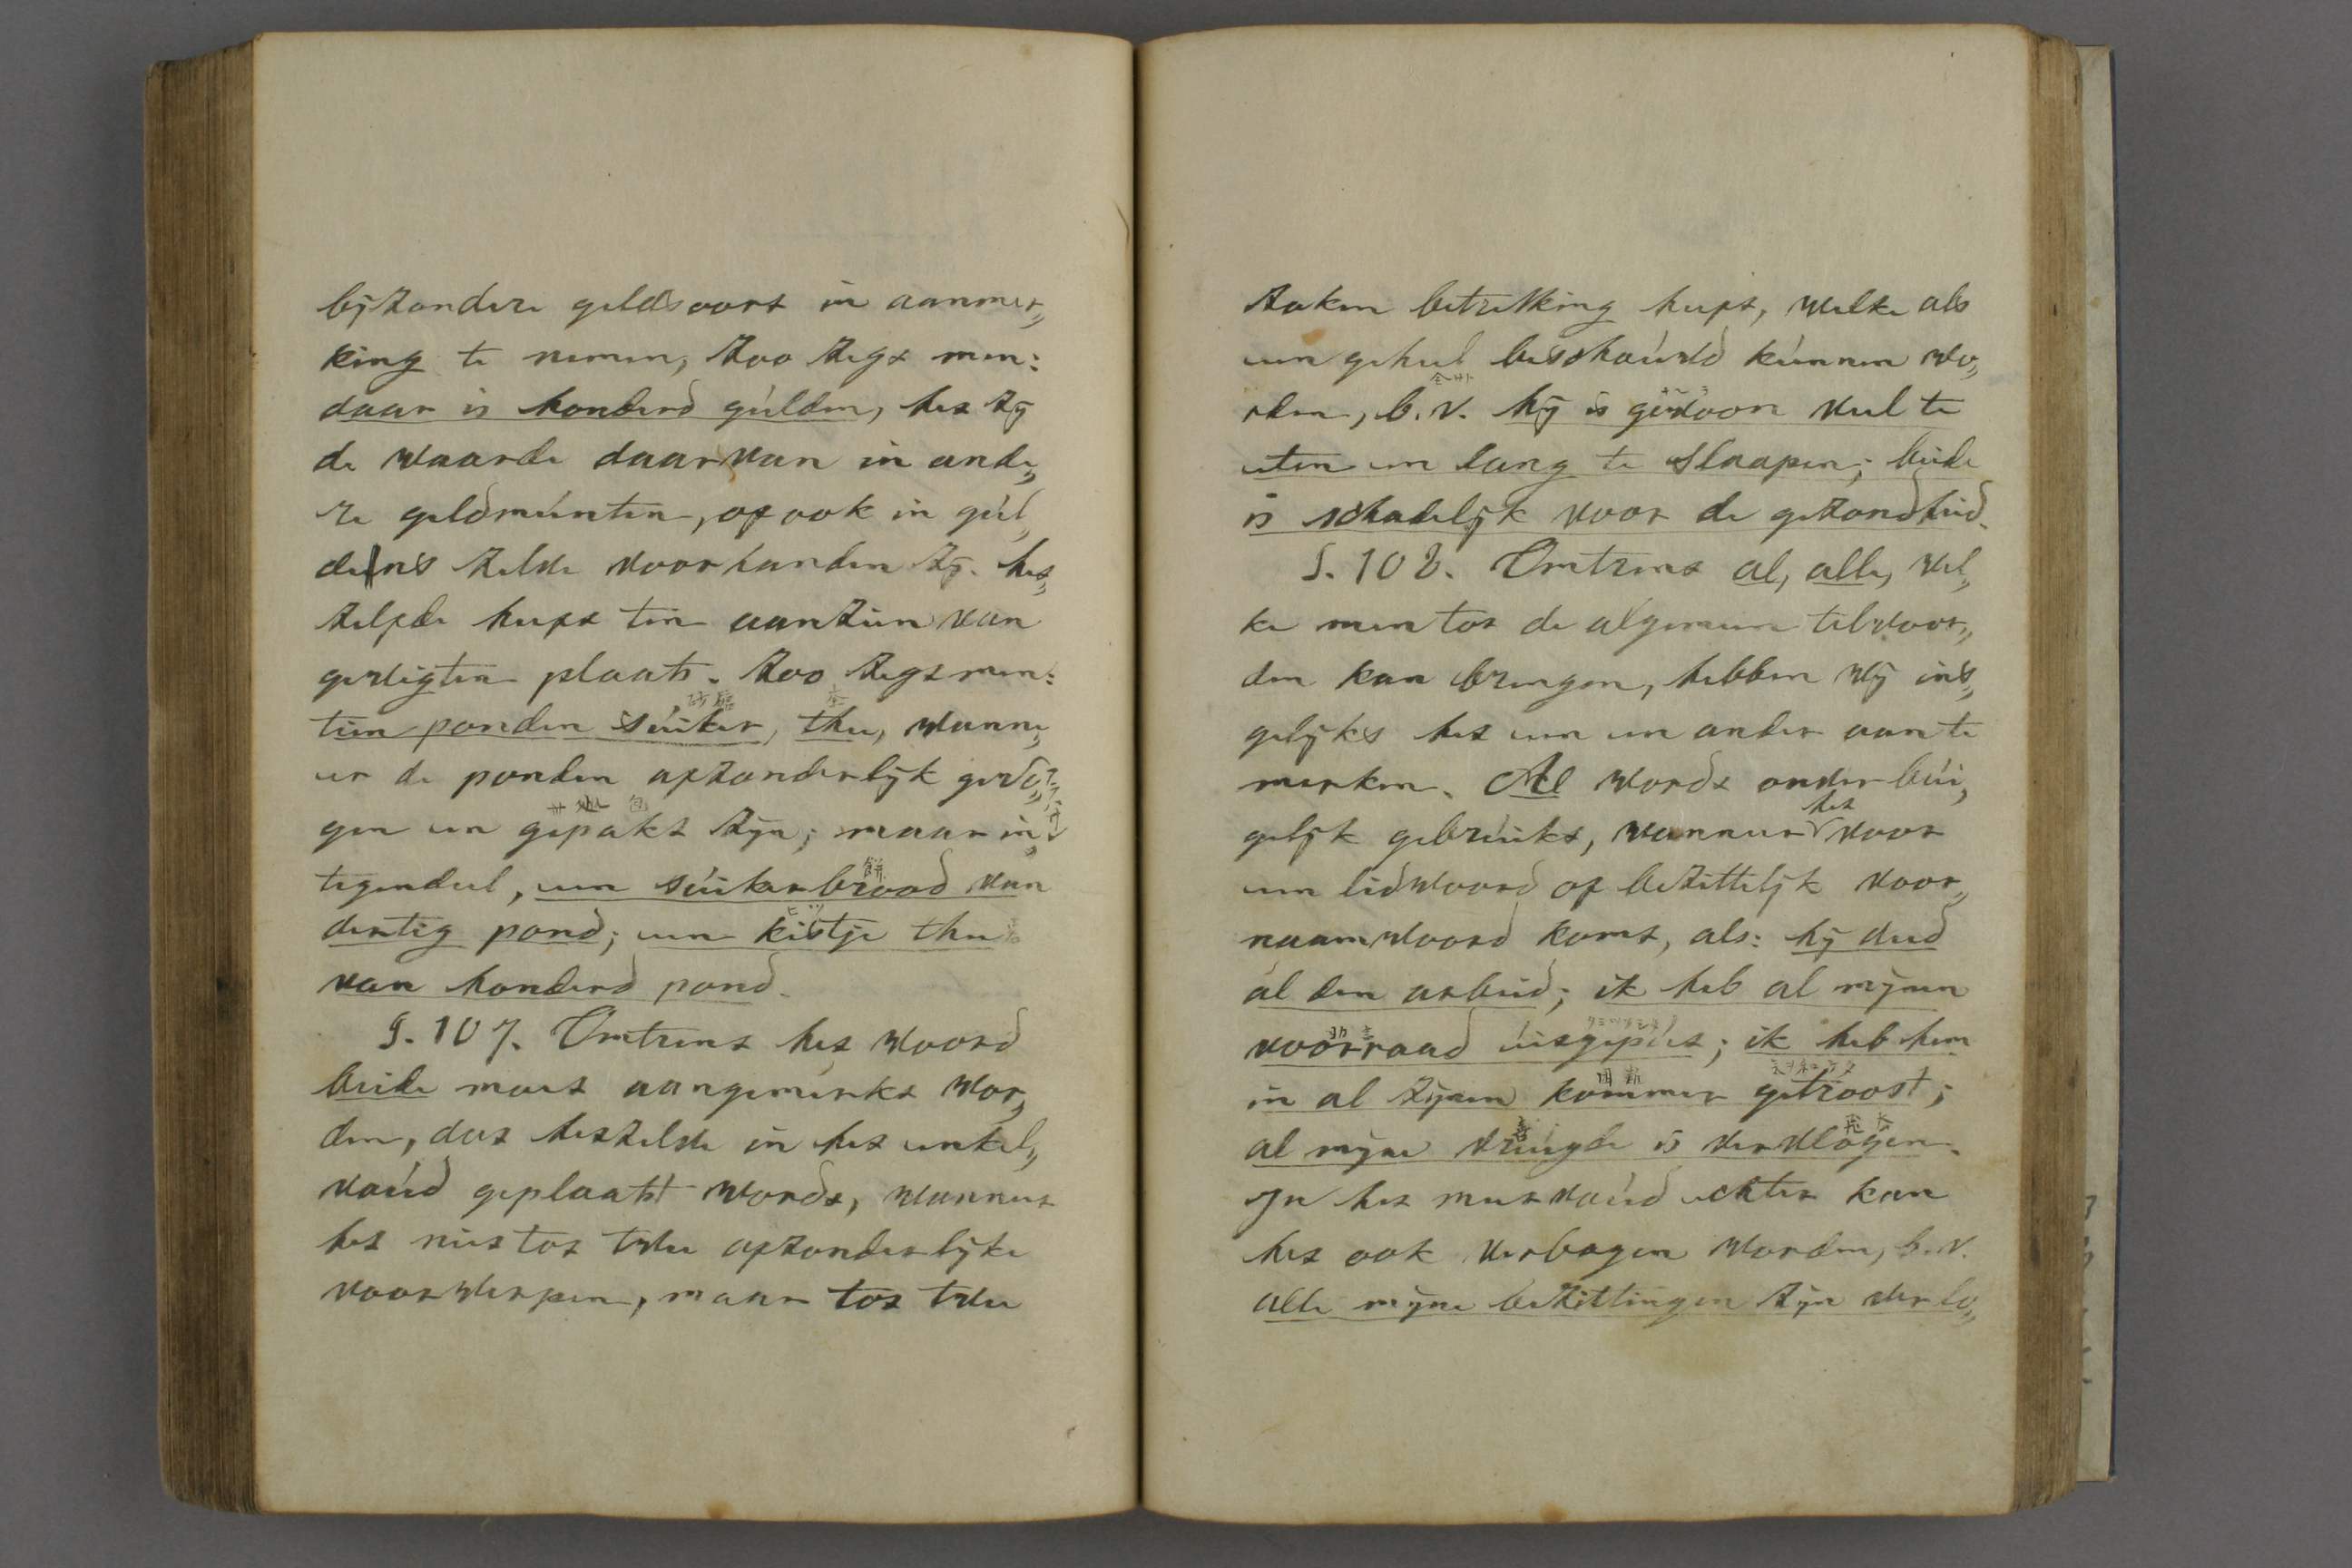 bijzondere geldsoort in aanmer„
king te nemen, zoo zegt men:
daar is honderd gúlden, het zij
de waarde daarvan in ande„
re geldmúnten, of ook in gúl„
dens zelve voorhanden zij. het„
zelfde heeft ten aanzien van
gewigten plaats. zoo zegt men:
tien ponden súiker, thee, wanne„
er de ponden afzonderlijk gewo„
gen en gepakt zijn; maar in„
tegendeel, een súikerbrood van
dertig pond; een kistje thee
van honderd pond.
§. 107. Omtrent het woord
beide moet aangemerkt wor„
den, dat hetzelve in het enkel„
voúd geplaatst wordt, wanneer
het niet tot twee afzonderlijke
voorwerpen, maar tot twee
zaken betrekking heeft, welke als
een geheel beschoúwd kúnnen wo„
rden, b.v. hij is gewoon veel te
eten en lang te slaapen; beide
is schadelijk voor de gezondheid.
§. 108. Omtrent al, alle, wel„
ke men tot de algemeene telwoor„
den kan brengen, hebben wij ins„
gelijks het een en ander aan te
merken. Al wordt onverbúi„
gelijk gebrúikt, wanneer het voor
een lidwoord of bezittelijk voor„
naamwoord komt, als: hij deed
al den arbeid; ik heb al mijnen
voorraad úitgepút; ik heb hem
in al zijnen kommer getroost;
al mijne vreúgde is vervlogen.
In het meervoúd echter kan
het ook verbogen worden, b.v.
alle mijne bezittingen zijn verlo„